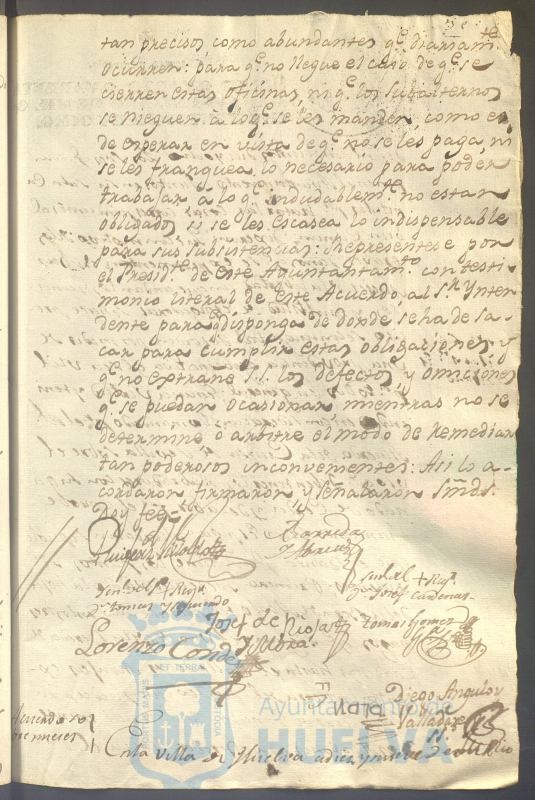 tan precisos, como abundantes q.e diariam.te
ocurren: para q.e no llegue el caso de q.e se
cierren estas oficinas, ni q.e los subalternos
se nieguen â lo q.e se les manden, como es
de esperar en vista de q.e no se les paga, ni
se les franquea lo necesario para poder
trabajar â lo q.e indudablem.te no estan
obligados si se les escasea lo indispensable
para sus subsistencias: Representese por
el Presid.te de este Ayuntantam.to con testi-
monio literal de este Acuerdo, al S.r Ynten
dente para q.e disponga de donde se ha de sa-
car para cumplir estas obligaciones y
q.e no extrañe S.S. los defectos, y omiciones
q.e se puedan ocasionar mientras no se
determine ô arbitre el modo de remediar
tan poderosos inconvenientes: Asi lo a-
cordaron firmaron y señalaron Smds.
Doy fee=
Josef Cardenas
Josef de Rioja
y Mora
Tomas Gomez
Lorenzo Conde
Diego Angulo y
Valladares
Ayuntamiento de
HUELVA
En la villa de Huelva a diez y nueve de Julio